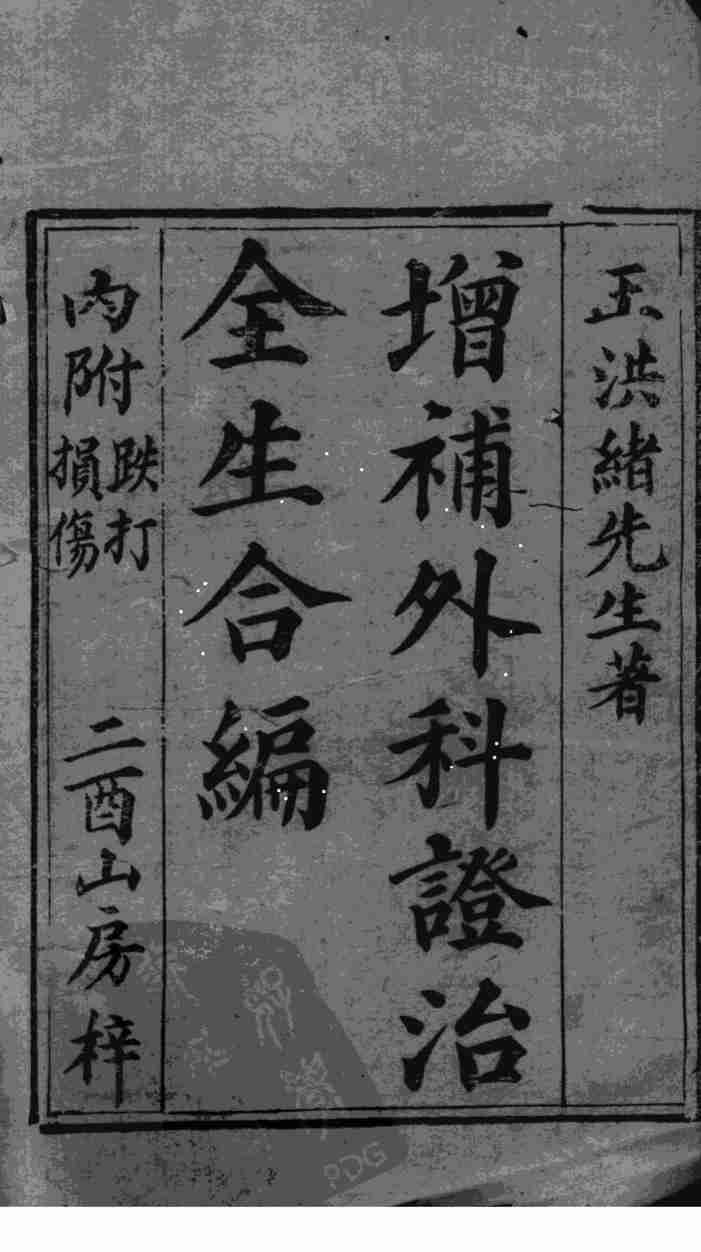 王洪緒先生著
增補外科證治
全生合編
內附跌打損傷
二酉山房梓
PDG